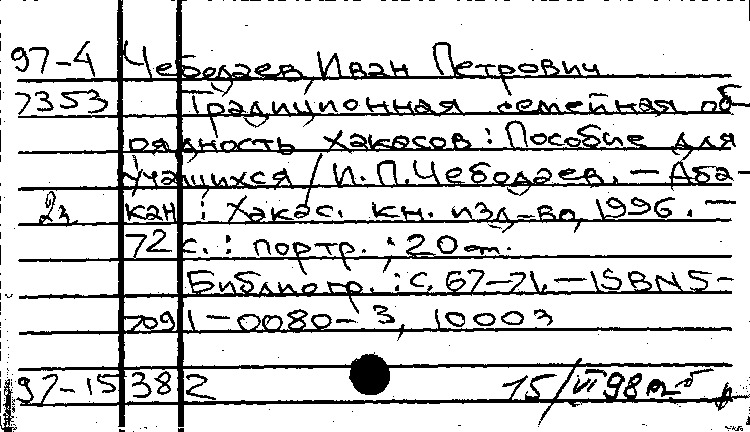 97-4 Чебодаев, Иван Петрович
7353 Традиционная семейная об-
рядность хакасов: Пособие для
учащихся / И. П. Чебодаев. — Аба-
кан: Хакас. кн. изд-во, 1996. —
72 с. : портр. ; 20 см.
Библиогр.: с. 67-71. — ISBN 5-
7091-0080-3, 1000э
97-15382 15/VI 98